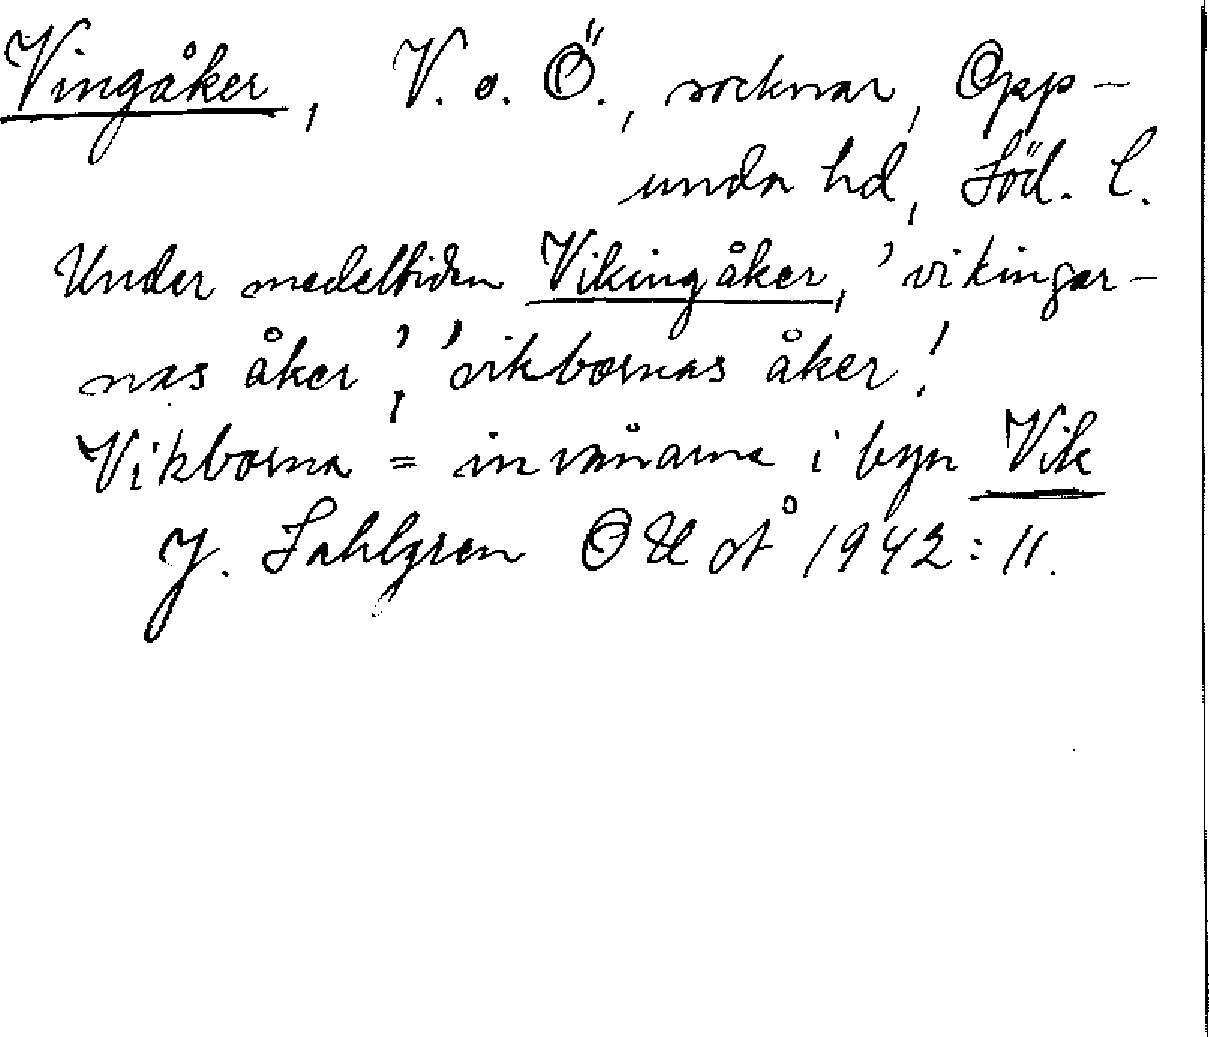 Vingåker, V. o. Ö., socknar, Opp-
unda hd, Söd. l.
Under medeltiden Vikingåker, 'vikingar-
nas åker', 'vikbornas åker'.
Vikborna = invånarna i byn Vik
J. Sahlgren OUÅ 1942:11.